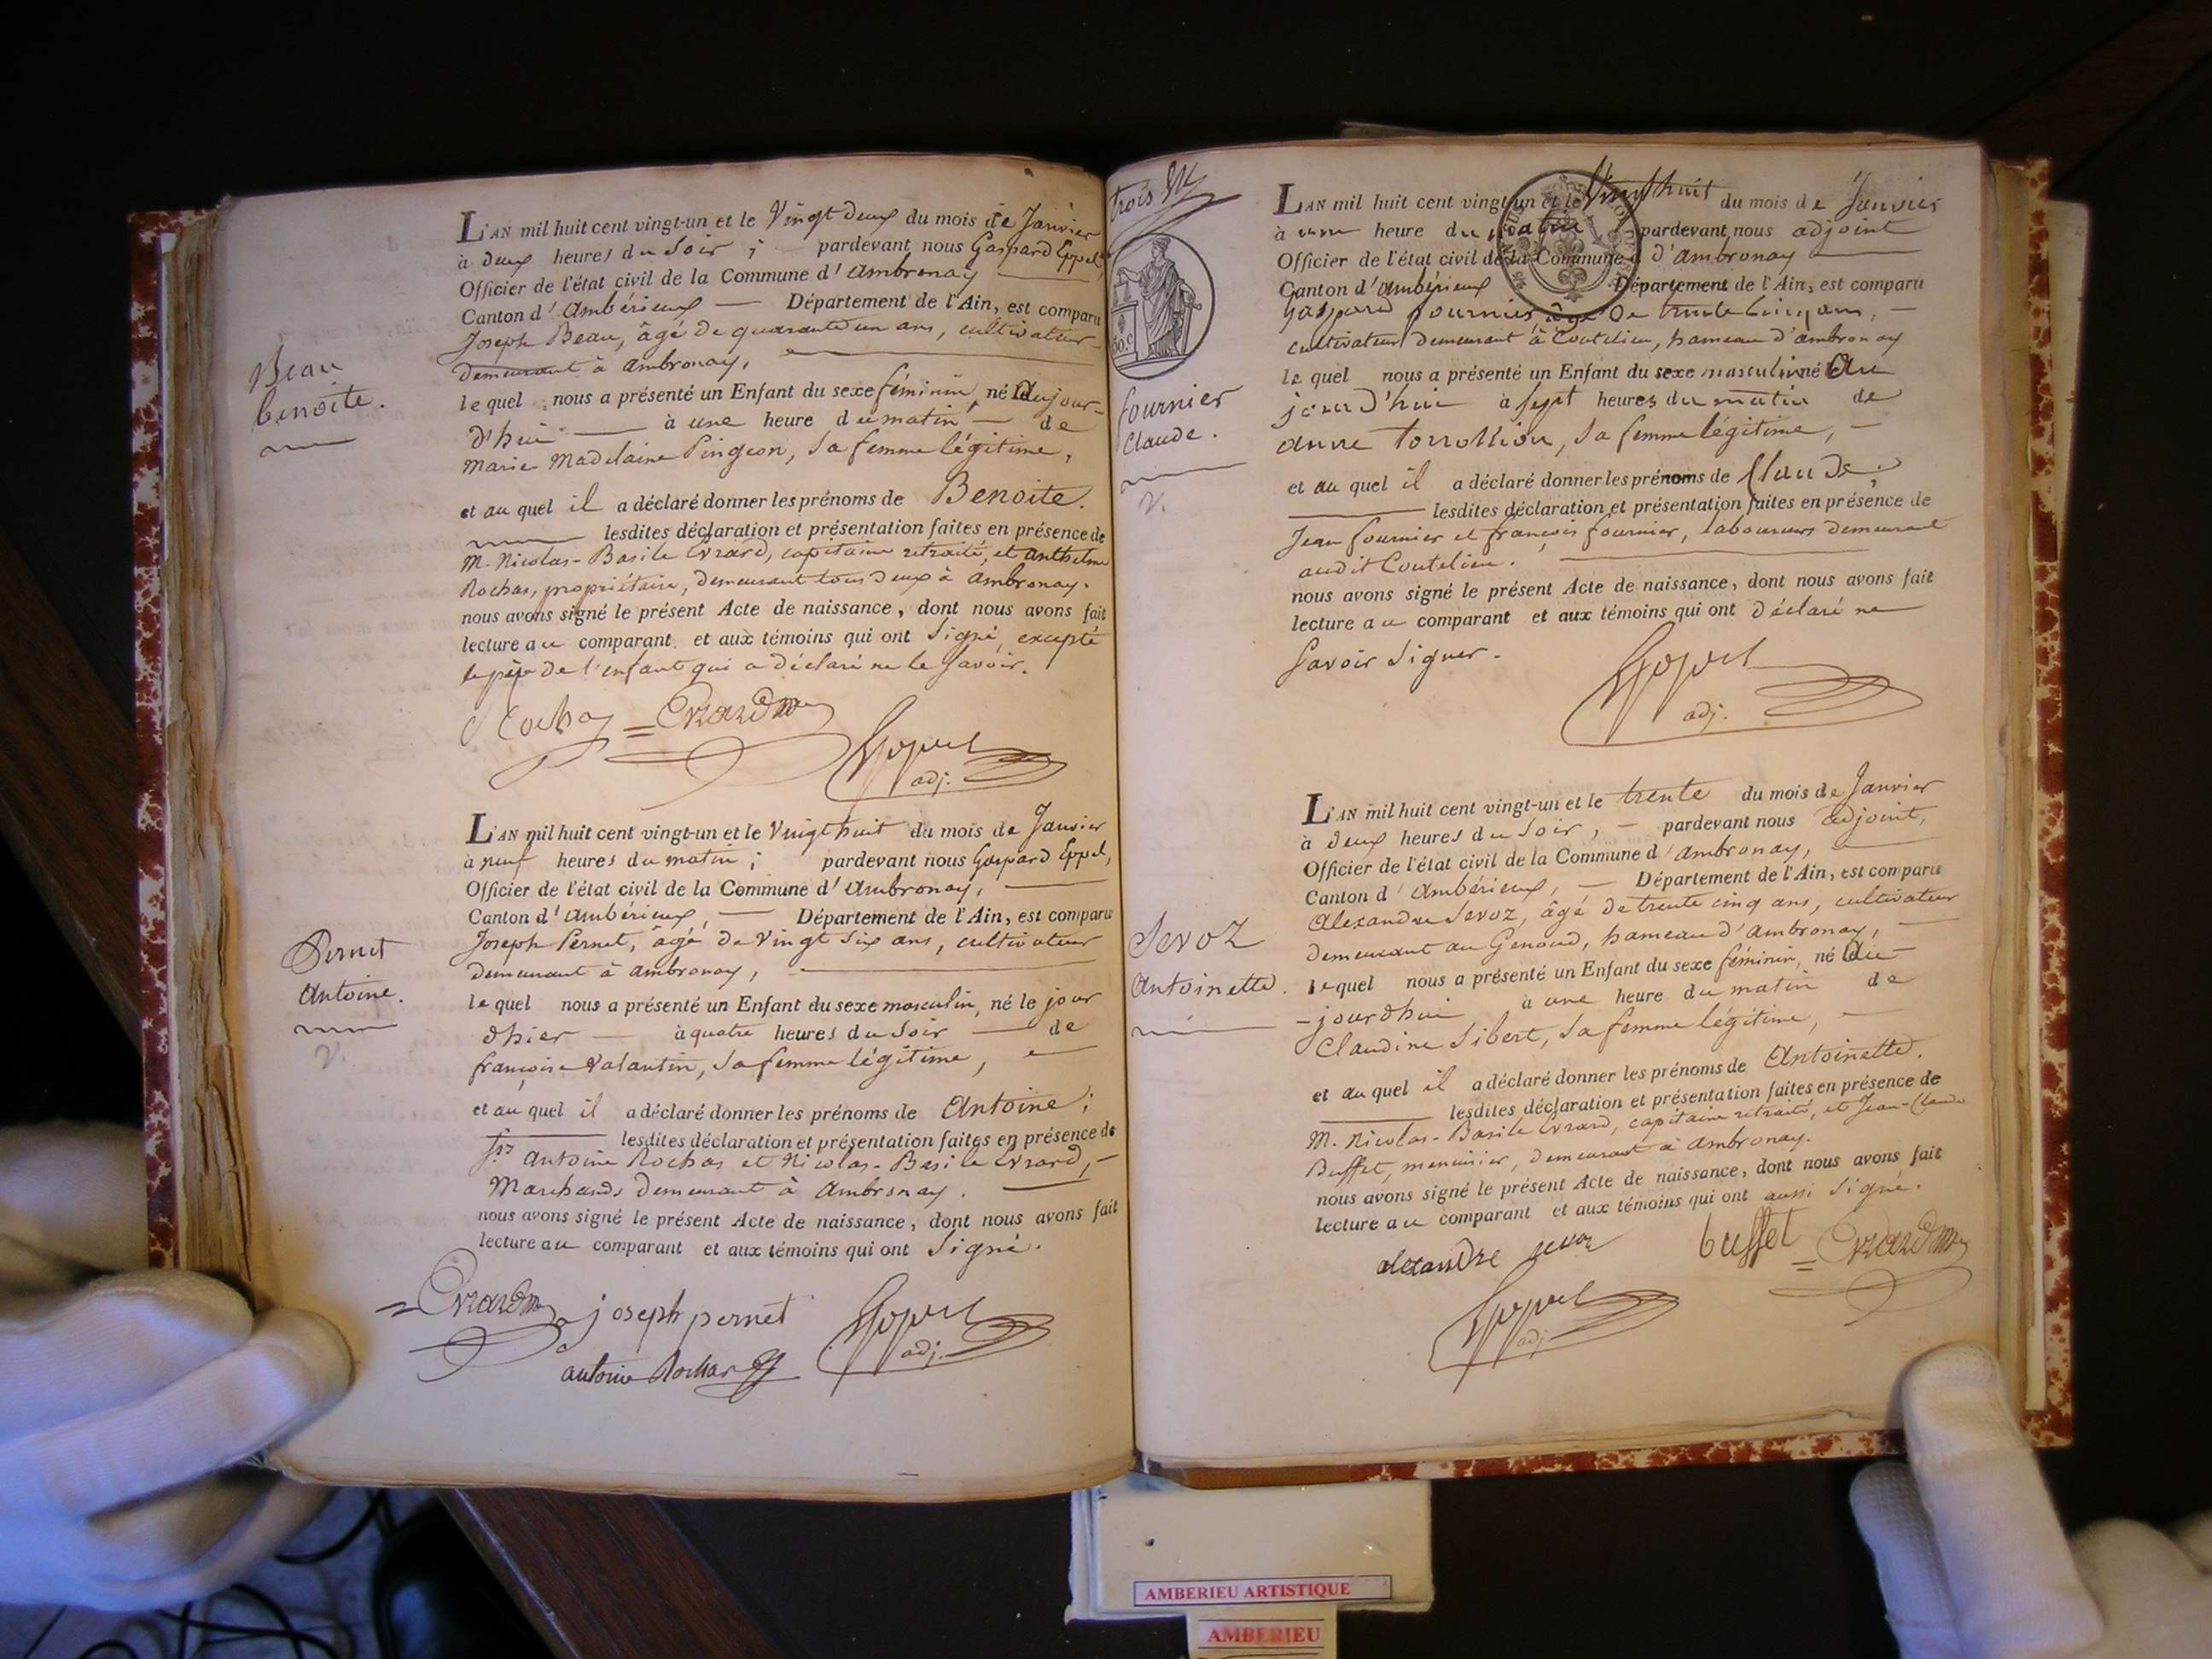 Beau
benoite.
L'AN mil huit cent vingt-un et le Vingt deux du mois de Janvier
à deux heures du Soir ; pardevant nous Gaspard Eppel,
Officier de l'état civil de la Commune d'Ambronay
Canton d'Ambérieux — Département de l'Ain, est comparu
Joseph Beau, âgé de quarante un ans, cultivateur
demeurant à Ambronay,
lequel nous a présenté un Enfant du sexe féminin, né aujour-
d'hui — à une heure du matin — de
Marie Madelaine Pingeon, sa femme légitime,
et auquel il a déclaré donner les prénoms de Benoite.
lesdites déclaration et présentation faites en présence de
M. Nicolas-Basile Evrard, capitaine retraité, et anthelme
Rochas, propriétaire, demeurant tous deux à Ambronay.
nous avons signé le présent Acte de naissance, dont nous avons fait
lecture au comparant et aux témoins qui ont Signé, excepté
le père de l'enfant qui a déclaré ne le Savoir.
Rochas = Evrard
Eppel
adj.
Pernet
Antoine.
V.
L'AN mil huit cent vingt-un et le Vingt huit du mois de Janvier
à neuf heures du matin ; pardevant nous Gaspard Eppel,
Officier de l'état civil de la Commune d'Ambronay,
Canton d'Ambérieux, — Département de l'Ain, est comparu
Joseph Pernet, âgé de Vingt Six ans, cultivateur
demeurant à Ambronay,
lequel nous a présenté un Enfant du sexe masculin, né le jour
d'hier — à quatre heures du Soir — de
françoise Valantin, sa femme légitime,
et auquel il a déclaré donner les prénoms de Antoine ;
lesdites déclaration et présentation faites en présence de
Antoine Rochas et Nicolas-Basile Evrard,
Marchands demeurant à Ambronay.
nous avons signé le présent Acte de naissance, dont nous avons fait
lecture au comparant et aux témoins qui ont Signé.
= Evrard joseph pernet Eppel
antoine Rochas adj.
trois
50.c
fournier
Claude.
V.
L'AN mil huit cent vingt-un et le Vingt huit du mois de Janvier
à une heure du matin pardevant nous adjoint
Officier de l'état civil de la Commune d'Ambronay
Canton d'Ambérieux Département de l'Ain, est comparu
Gaspard fournier, âgé de trente cinq ans, —
cultivateur demeurant à Coutelieu, hameau d'Ambronay
lequel nous a présenté un Enfant du sexe masculin né Au
jourd'hui à Sept heures du matin de
anne Torrollion, Sa femme légitime, —
et au quel il a déclaré donner les prénoms de Claude ;
lesdites déclaration et présentation faites en présence de
Jean fournier et françois fournier, laboureurs demeurant
audit Coutelieu.
nous avons signé le présent Acte de naissance, dont nous avons fait
lecture au comparant et aux témoins qui ont déclaré ne
Savoir Signer.
Eppel
adj.
Sevoz
Antoinette.
L'AN mil huit cent vingt-un et le trente du mois de Janvier
à deux heures du Soir, — pardevant nous adjoint,
Officier de l'état civil de la Commune d'Ambronay,
Canton d'Ambérieux, — Département de l'Ain, est comparu
Alexandre Sevoz, âgé de trente cinq ans, cultivateur
demeurant au Genoud, hameau d'Ambronay, —
lequel nous a présenté un Enfant du sexe féminin, né Au
-jourdhui à une heure du matin de
Claudine Sibert, Sa femme légitime, —
et au quel il a déclaré donner les prénoms de Antoinette.
lesdites déclaration et présentation faites en présence de
M. Nicolas-Basile Evrard, capitaine retraité, et Jean-Claude
Buffet, menuisier, demeurant à Ambronay.
nous avons signé le présent Acte de naissance, dont nous avons fait
lecture au comparant et aux témoins qui ont aussi Signé.
alexandre sevoz buffet = Evrard
Eppel
adj.
AMBERIEU ARTISTIQUE
AMBERIEU